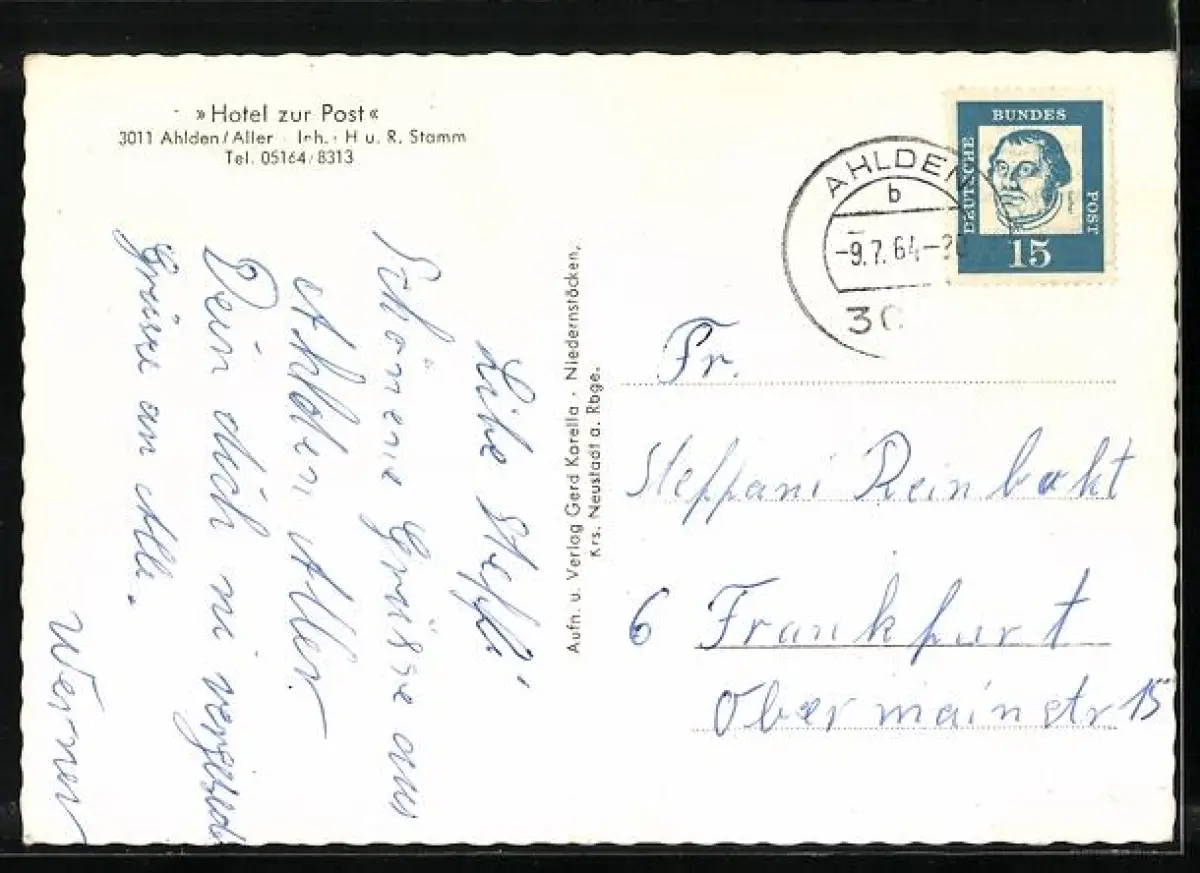 »Hotel zur Post«
3011 Ahlden/Aller · Inh.: H u. R. Stamm
Tel. 05164/8313
Libe Steffi
Schönene Grüsse aus
Ahlden Aller
Dein dich ni
Grüsse an Alle.
Werner
Aufn. u. Verlag Gerd Korella · Niedernstöcken,
Krs. Neustadt a. Rbge.
DEUTSCHE
BUNDES
POST
15
AHLDEN
b
-9.7.64-
30
Fr.
Steffani Reinbokt
6 Frankfurt
Obermainstr 15